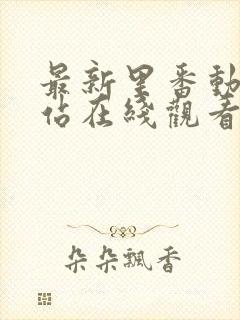 最新里番動
佔在綫觀看
朵朵飄香